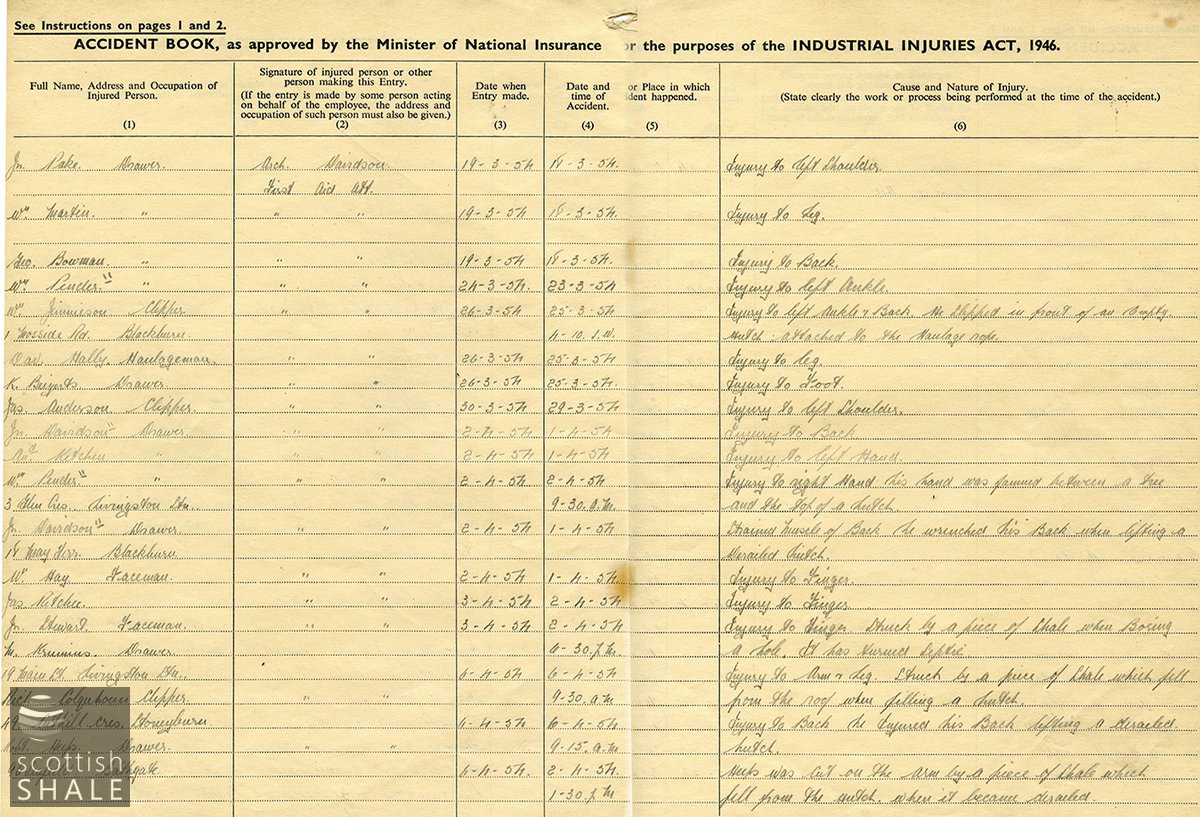 See Instructions on pages 1 and 2.
ACCIDENT BOOK, as approved by the Minister of National Insurance or the purposes of the INDUSTRIAL INJURIES ACT, 1946.
Full Name, Address and Occupation of Injured Person. (1)
Signature of injured person or other person making this Entry. (If the entry is made by some person acting on behalf of the employee, the address and occupation of such person must also be given.) (2)
Date when Entry made. (3)
Date and time of Accident. (4)
or Place in which ident happened. (5)
Cause and Nature of Injury. (State clearly the work or process being performed at the time of the accident.) (6)
Jn. Pake. Drawer. Arch. Davidson. 19-3-54 18-3-54. Injury to left Shoulder.
First Aid Att.
Wm Martin. " " " 19-3-54 18-3-54. Injury to Leg.
Geo. Bowman. " " " 19-3-54 18-3-54. Injury to Back.
Wm Pender. " " " 24-3-54. 23-3-54 Injury to left Ankle.
Wm Jimmieson Clipper. " " 26-3-54 25-3-54. Injury to left Ankle & Back. He slipped in front of an Empty
1 Mosside Rd. Blackburn. 4-10. Hutch. attached to the Haulage rope.
Dav. Hally. Haulageman. " " 26-3-54. 25-3-54. Injury to leg.
K. Drawer. " " 26-3-54 25-3-54. Injury to Foot.
Jas. Anderson Clipper. " " 30-3-54 29-3-54 Injury to left Shoulder.
Jn. Davidson " Drawer " " 2-4-54 1-4-54 Injury to Back
And Kitchen " " " 2-4-54 1-4-54 Injury to left Hand.
Wm Pender " " " " 2-4-54 2-4-54 Injury to right Hand his hand was jammed between a tree
3 Glen Cres. Livingston Stn. 9-30.a.m. and the top of a hutch.
Jn. Davidson " Drawer " " 2-4-54 1-4-54 Strained Muscle of Back he wrenched his Back when lifting a
18 May Terr. Blackburn derailed hutch.
Wm Hay Faceman. " " 2-4-54 1-4-54. Injury to Finger.
Jas Ritchie. " " 3-4-54 2-4-54 Injury to Finger
Jn. Stewart. Faceman. " " 3-4-54 2-4-54. Injury to Finger Struck by a piece of Shale when Boring
Drawer 6-30.p.m a hole. It has turned septic
19 Main St. Livingston Stn. 6-4-54 6-4-54. Injury to Arm & Leg. Struck by a piece of Shale which fell
Colquhoun Clipper. 9-30.a.m from the roof when filling a hutch.
Cres. Stoneyburn 6-4-54 6-4-54. Injury to Back he Injured his Back lifting a derailed
Robt. Drawer. " " 9-15.a.m hutch.
Bathgate 6-4-54. 2-4-54. was cut on the arm by a piece of Shale which
1-30.p.m fell from the hutch. when it became derailed.
scottish
SHALE